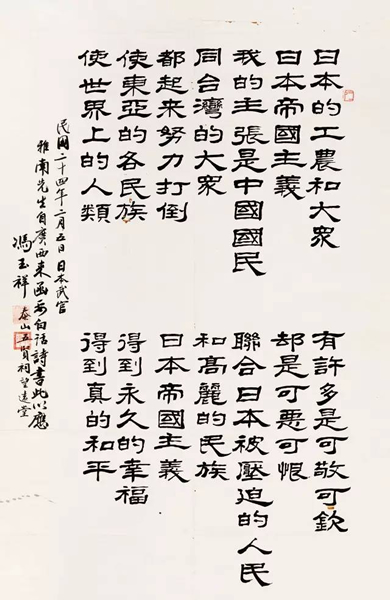 日本的工農和大眾
有許多是可敬可欽
日本帝國主義
却是可惡可恨
我的主張是中國國民
聯合日本被壓迫的人民
同台灣的大眾
和高麗的民族
都起來努力打倒
日本帝國主義
使東亞的各民族
得到永久的幸福
使世界上的人類
得到真的和平
民國二十四年二月五日日本武官
雅南先生自廣西來函要白話詩書此以應
馮玉祥 泰山五賢祠望遠堂